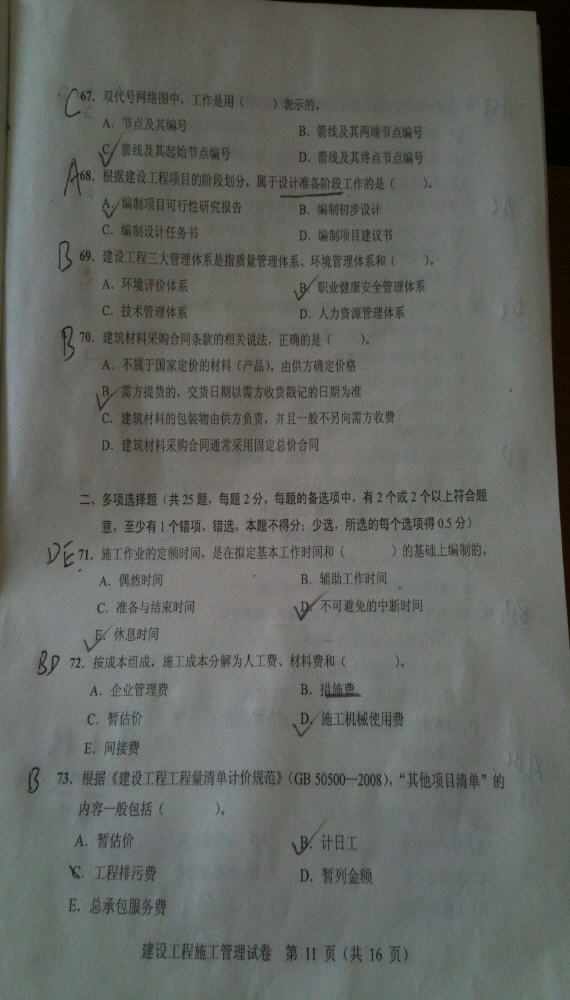 C 67. 双代号网络图中，工作是用（　　）表示的。
A. 节点及其编号　B. 箭线及其两端节点编号
C. 箭线及其起始节点编号　D. 箭线及其终点节点编号
A 68. 根据建设工程项目的阶段划分，属于设计准备阶段工作的是（　　）。
A. 编制项目可行性研究报告　B. 编制初步设计
C. 编制设计任务书　D. 编制项目建议书
B 69. 建设工程三大管理体系是指质量管理体系、环境管理体系和（　　）。
A. 环境评价体系　B. 职业健康安全管理体系
C. 技术管理体系　D. 人力资源管理体系
B 70. 建筑材料采购合同条款的相关说法，正确的是（　　）。
A. 不属于国家定价的材料（产品），由供方确定价格
B. 需方提货的，交货日期以需方收货戳记的日期为准
C. 建筑材料的包装物由供方负责，并且一般不另向需方收费
D. 建筑材料采购合同通常采用固定总价合同
二、多项选择题（共 25 题，每题 2 分，每题的备选项中，有 2 个或 2 个以上符合题
意，至少有 1 个错项。错选，本题不得分；少选，所选的每个选项得 0.5 分）
DE 71. 施工作业的定额时间，是在拟定基本工作时间和（　　）的基础上编制的。
A. 偶然时间　B. 辅助工作时间
C. 准备与结束时间　D. 不可避免的中断时间
E. 休息时间
BD 72. 按成本组成，施工成本分解为人工费、材料费和（　　）。
A. 企业管理费　B. 措施费
C. 暂估价　D. 施工机械使用费
E. 间接费
B 73. 根据《建设工程工程量清单计价规范》（GB 50500—2008），“其他项目清单”的
内容一般包括（　　）。
A. 暂估价　B. 计日工
C. 工程排污费　D. 暂列金额
E. 总承包服务费
建设工程施工管理试卷　第 11 页（共 16 页）